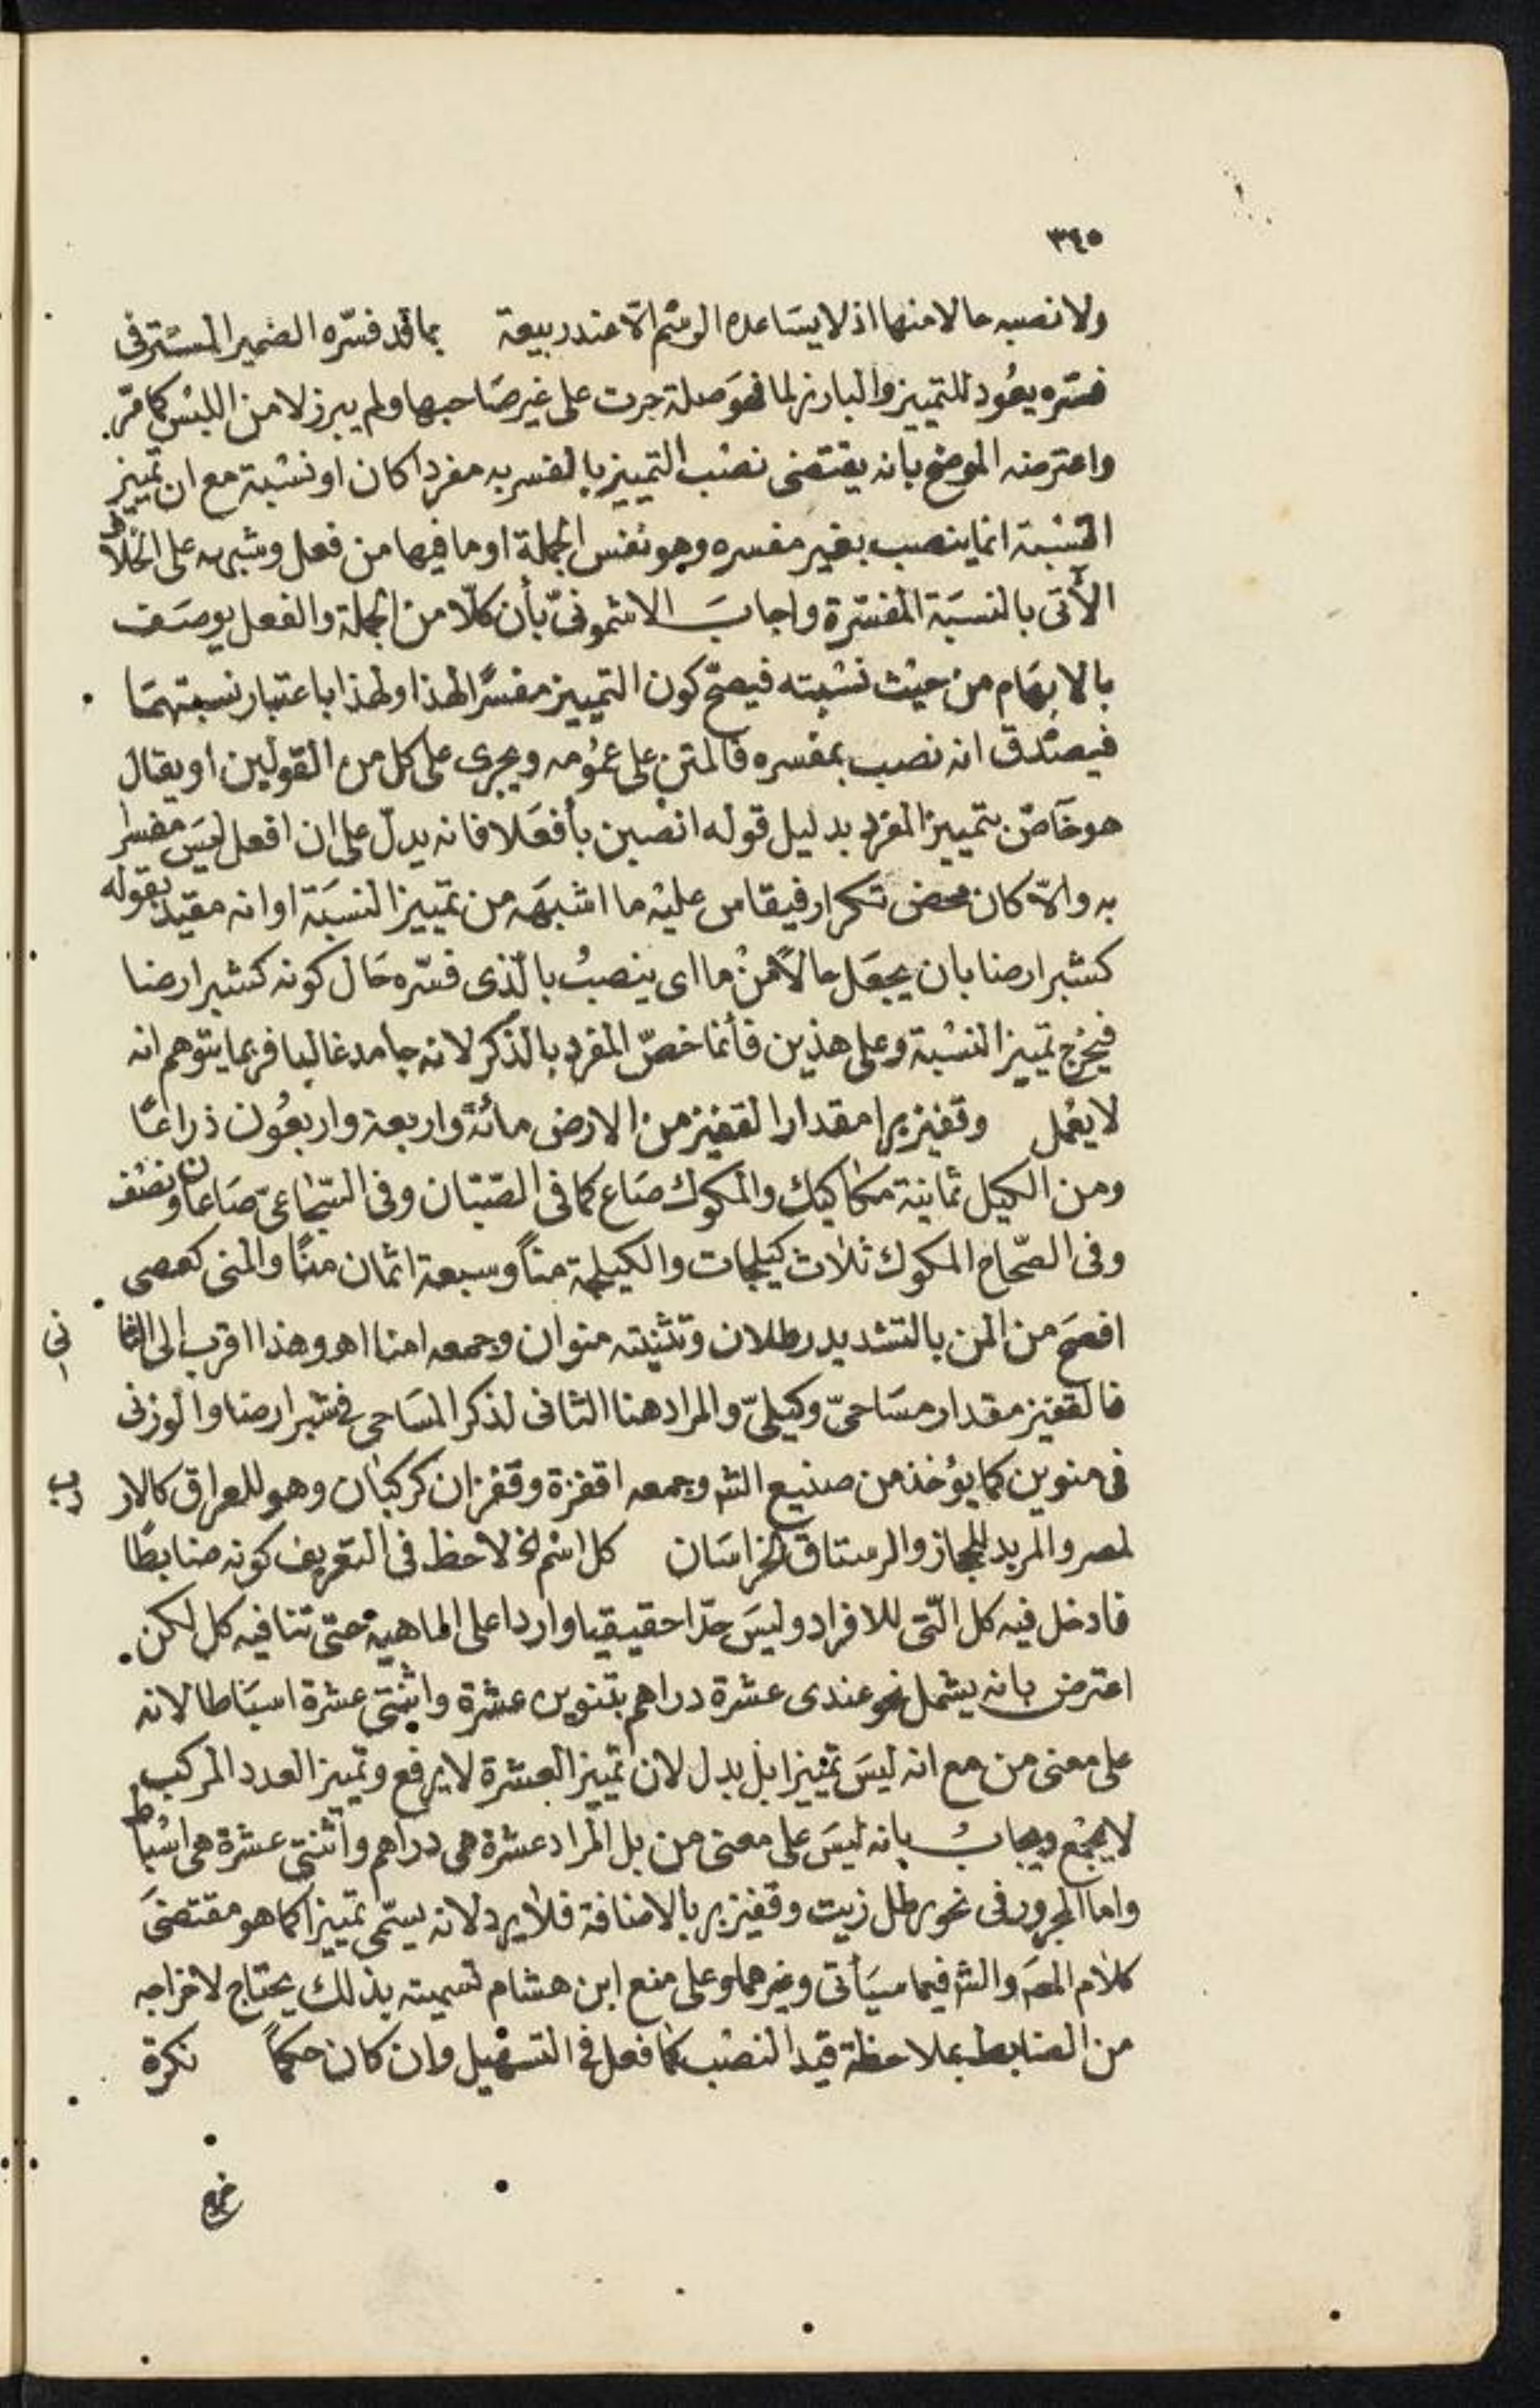 ٣٤٥
ولا نصبه حالا منها اذ لا يساعده الرسم الّا عند ربيعة بما قد فسّره الضمير المستتر فى
فسّره يعُود للتمييز والبارز لما فهوَ صلة جرت على غير صَاحبها ولم يبرز لامن اللبس كما مرّ
واعترضه الموضح بانه يقتضى نصْب التمييز بالمفسر به مفردا كان او نسْبة مع ان تمييز
النسْبة انما ينصب بغير مفسره وهو نفس الجملة او ما فيها من فعل وشبهه على الخلاف
الآتى بالنسَبة المفسّرة واجابَ الاشمونىّ بأن كلّا من الجملة والفعل يوصَف
بالابهَام من حيْث نسْبته فيصحّ كون التمييز مفسّرًا لهذا ولهذا باعتبار نسبتهمَا
فيصْدق انه نصب بمفسره فالمتن على عمُومه ويجرى على كل من القولين او يقال
هو خَاصّ بتمييز المفرد بدليل قوله انصبن بأفعَلا فانه يدلّ على ان افعل ليسَ مفسرا
به والّا كان محض تكرار فيقاس عليْه ما اشبهَه من تمييز النسَبة او انه مقيد بقوله
كشبر ارضا بان يجعَل حالًا منْ ما اى ينصبُ بالّذى فسّره حَال كونه كشبر ارضا
فيخرج تمييز النسْبة وعلى هذين فأنما خصّ المفرد بالذّكر لانه جامد غالبا فربما يتوهم انه
لا يعْمل وقفيز برا مقدار القفيز من الارض مائةً واربعة واربعُون ذراعًا
ومن الكيل ثمانية مكاكيك والمكوك صَاع كما فى الصّبان وفى السّجاعىّ صَاعان ونصْف
وفى الصّحاح المكوك ثلاث كيْلجات والكيلجة منًا وسبعة اثمان منًا والمنى كعصى
افصَح من المن بالتشديد رطلان وتثنيته منوان وجمعه امنا اهـ وهذا اقرب إلى الثا
نى
فالقفيز مقدار مسَاحىّ وكيلىّ والمراد هنا الثانى لذكر المسَاحى فى شبر ارضا والوزنى
فى منوين كما يؤخذ من صنيع الشـ وجمعه اقفزة وقفزان كركبَان وهو للعراق كالار
دب
لمصر والمربد للحجاز والرستاق لخراسَان كل اسْم الخ لاحظ فى التعريف كونه ضابطًا
فادخل فيه كل الّتى للافراد وليسَ حدّا حقيقيا واردا على الماهية حتّى تنافيه كل لكن
اعترض بانه يشمل نحو عندى عشرة دراهم بتنوين عشرة واثنتى عشرة اسبَاطا لانه
على معنى من مع انه ليسَ تمييزا بل بدل لان تمييز العشرة لا يرفع وتمييز العدد المركب
لا يجْمع ويجابُ بانه ليسَ على معنى من بل المراد عشرة هى دراهم واثنتى عشرة هى اسْباط
واما المجرور فى نحو رطل زيت وقفيز بر بالاضافة فلا يرد لانه يسمّى تمييزا كما هو مقتضىَ
كلام المصَ والشـ فيما سيَأتى وغيرهما وعلى منع ابن هشام تسميته بذلك يحتاج لاخراجه
من الضابط بملاحظة قيد النصْب كما فعل فى التسْهيل وان كان حكمًا نكرة